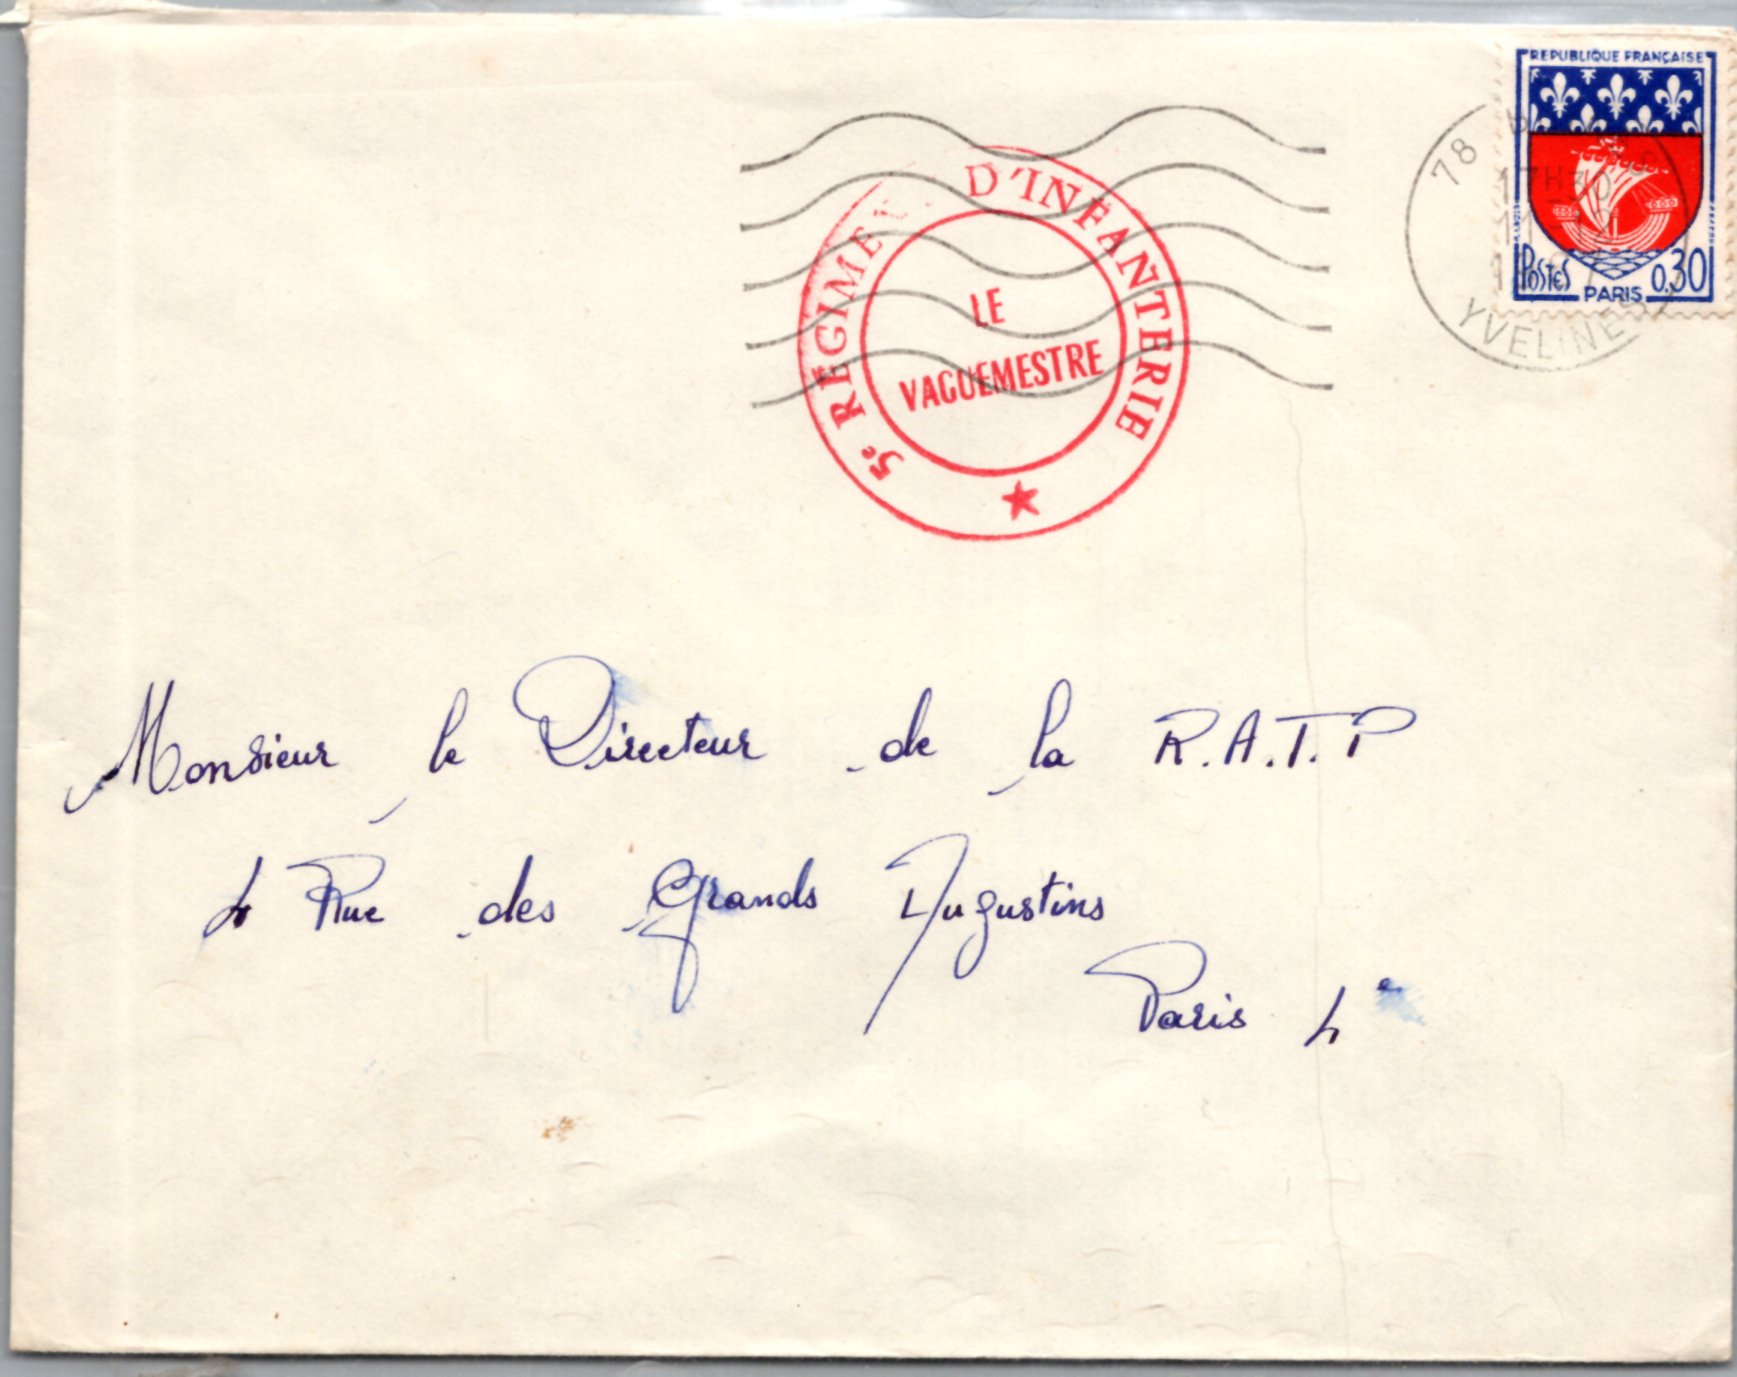 REPUBLIQUE FRANÇAISE
POSTES
0,30
PARIS
78
17H30
YVELINES
5e RÉGIMENT D'INFANTERIE
LE
VAGUEMESTRE
Monsieur le Directeur de la R.A.T.P
4 Rue des Grands Augustins
Paris 4e